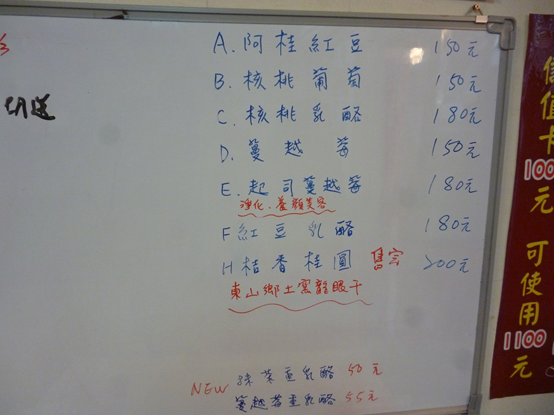 切送
A. 阿桂紅豆 150元
B. 核桃葡萄 150元
C. 核桃乳酪 180元
D. 蔓越莓 150元
E. 起司蔓越莓 180元
淨化、養顏美容
F 紅豆乳酪 180元
H 桔香桂圓 售完 200元
東山鄉土窯龍眼干
NEW 抹茶重乳酪 50元
蔓越莓重乳酪 55元
儲值卡
100
元可使用
1100
元